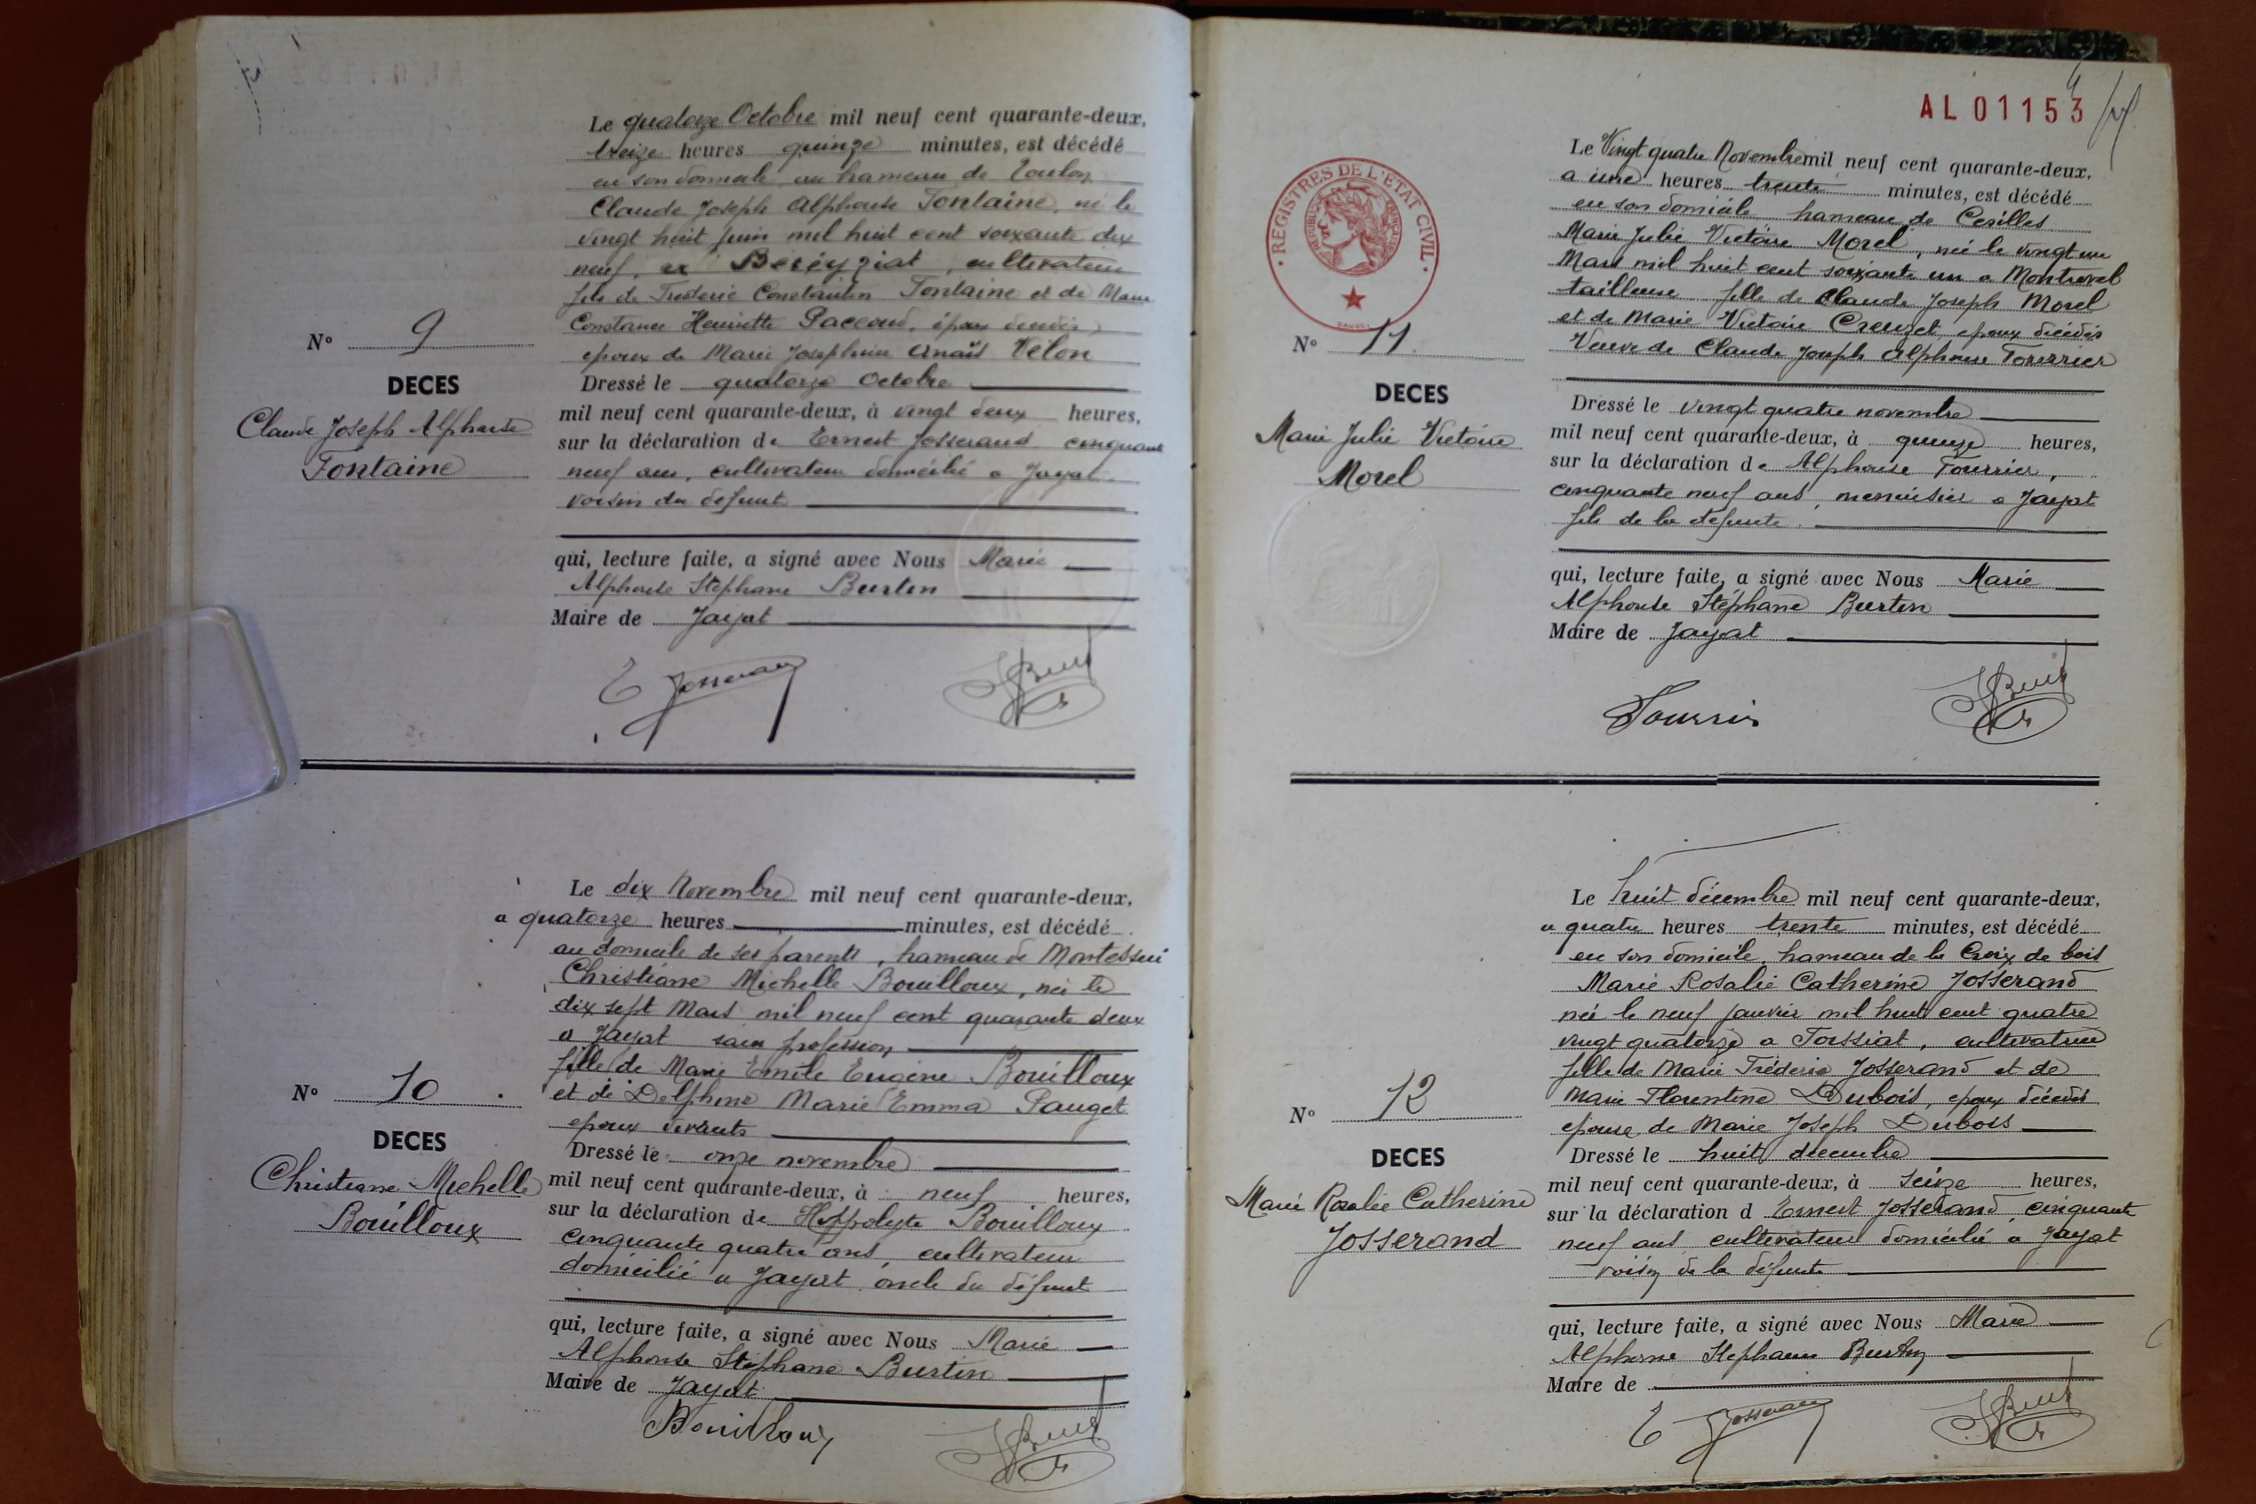 Le quatorze Octobre mil neuf cent quarante-deux,
treize heures quinze minutes, est décédé
en son domicile au hameau de Toulon
Claude Joseph Alphonse Fontaine, né le
vingt huit juin mil huit cent soixante dix
neuf, a Béréyziat, cultivateur
fils de Frédéric Constantin Fontaine et de Marie
Constance Henriette Paccoud, époux décédés
epoux de Marie Josephine Anaïs Velon
Nº 9
DECES
Claude Joseph Alphonse
Fontaine
Dressé le quatorze Octobre
mil neuf cent quarante-deux, à vingt deux heures,
sur la déclaration de Ernest Josserand cinquante
neuf ans, cultivateur domicilié a Jayat
voisin du défunt
qui, lecture faite, a signé avec Nous Marie
Alphonse Stephane Burtin
Maire de Jayat
E Josserand
Le dix Novembre mil neuf cent quarante-deux,
a quatorze heures minutes, est décédé
au domicile de ses parents, hameau de Montessui
Christiane Michelle Bouilloux, née le
dix sept Mars mil neuf cent quarante deux
a Jayat sans profession
fille de Marie Emile Eugène Bouilloux
et de Delphine Marie Emma Pauget
epoux vivants
Nº 10
DECES
Christiane Michelle
Bouilloux
Dressé le onze novembre
mil neuf cent quarante-deux, à neuf heures,
sur la déclaration de Hippolyte Bouilloux
cinquante quatre ans, cultivateur
domicilié a Jayat oncle du défunt
qui, lecture faite, a signé avec Nous Marie
Alphonse Stéphane Burtin
Maire de Jayat
Bouilloux
AL 01153
REGISTRES DE L'ETAT CIVIL
Le Vingt quatre Novembre mil neuf cent quarante-deux,
a une heures trente minutes, est décédé
en son domicile hameau de Cesilles
Marie Julie Victoire Morel, née le vingt un
Mars mil huit cent soixante un a Montrevel
tailleuse fille de Claude Joseph Morel
et de Marie Victoire Creuzet, epoux décédés
Veuve de Claude Joseph Alphonse Fourrier
Nº 11
DECES
Marie Julie Victoire
Morel
Dressé le vingt quatre novembre
mil neuf cent quarante-deux, à quinze heures,
sur la déclaration de Alphonse Fourrier,
cinquante neuf ans, menuisier a Jayat
fils de la défunte.
qui, lecture faite, a signé avec Nous Marie
Alphonse Stéphane Burtin
Maire de Jayat
Fourrier
Le huit décembre mil neuf cent quarante-deux,
a quatre heures trente minutes, est décédé
en son domicile, hameau de la Croix de bois
Marie Rosalie Catherine Josserand
née le neuf janvier mil huit cent quatre
vingt quatorze a Foissiat, cultivatrice
fille de Marie Fréderic Josserand et de
Marie Florentine Dubois, epoux décédés
epouse de Marie Joseph Dubois
Nº 12
DECES
Marie Rosalie Catherine
Josserand
Dressé le huit decembre
mil neuf cent quarante-deux, à Seize heures,
sur la déclaration d Ernest Josserand, cinquante
neuf ans cultivateur domicilié a Jayat
voisin de la défunte
qui, lecture faite, a signé avec Nous Marie
Alphonse Stephane Burtin
Maire de
E Josserand